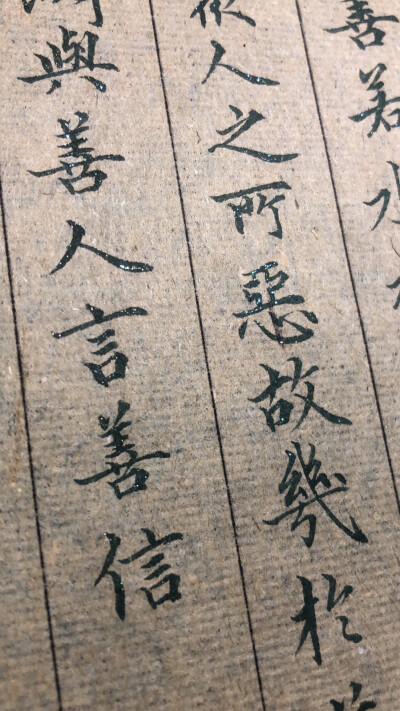 善若水
人之所惡故幾於
與善人言善信